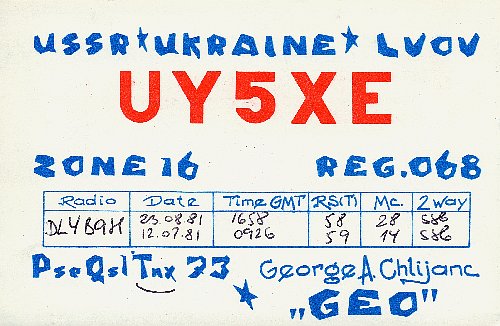 USSR*UKRAINE* LVOV
UY5XE
ZONE 16 REG.068
Radio Date Time GMT RS(T) Mc. 2 way
DL4BQH 23.08.81 1658 58 28 SSB
12.07.81 0926 59 14 SSB
Pse Qsl Tnx 73 George A. Chlijanc
"GEO"